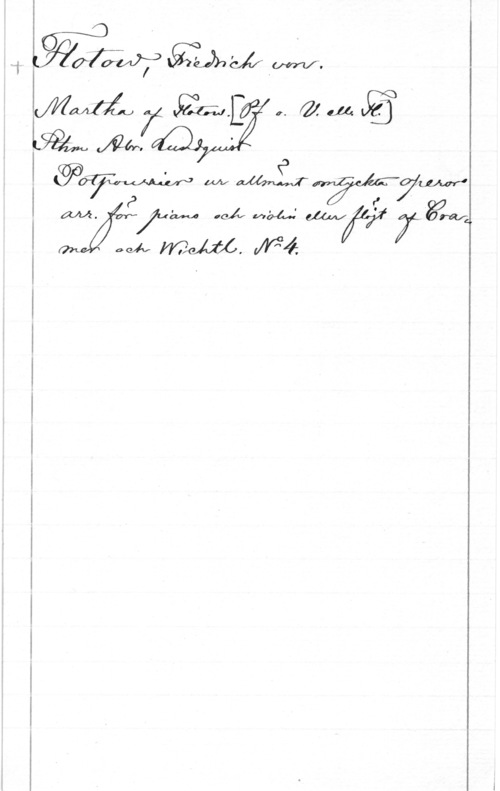 + Flotow, Friedrich von.
Martha af Flotow. [Pf o. V. ell. Fl.]
Sthm Abr. Lundquist
Potpourrier ur allmänt omtyckta operor
arr. för piano och violin eller flöjt af Cra-
mer och Wichtl. Nº 4.